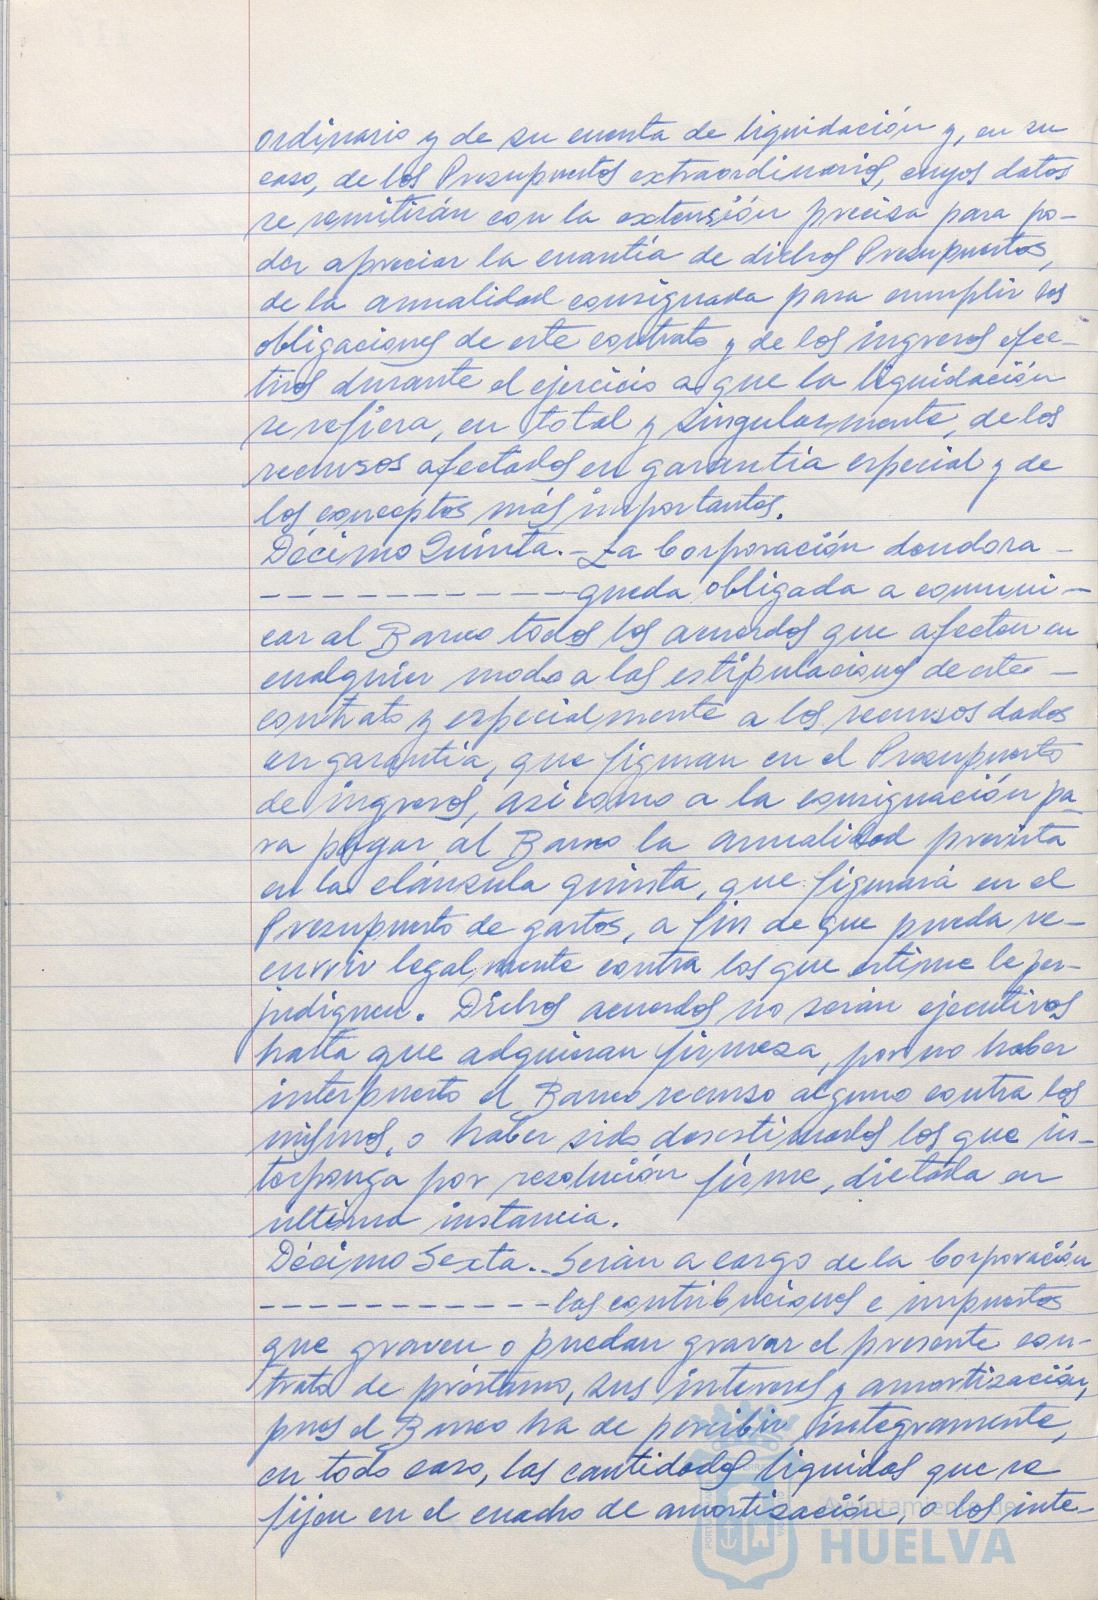 ordinario y de su cuenta de liquidación y, en su
caso, de los Presupuestos extraordinarios, cuyos datos
se remitirán con la extensión precisa para po-
der apreciar la cuantía de dichos Presupuestos,
de la anualidad consignada para cumplir las
obligaciones de este contrato y de los ingresos efec-
tivos durante el ejercicio a que la liquidación
se refiera, en total y singularmente, de los
recursos afectados en garantía especial y de
los conceptos más importantes.
Décimo Quinta.- La Corporación deudora -
----------- queda obligada a comuni-
car al Banco todos los acuerdos que afecten en
cualquier modo a las estipulaciones de este -
contrato y especialmente a los recursos dados
en garantía, que figuran en el Presupuesto
de ingresos, así como a la consignación pa-
ra pagar al Banco la anualidad prevista
en la cláusula quinta, que figurará en el
Presupuesto de gastos, a fin de que pueda re-
currir legalmente contra los que estime le per-
judiquen. Dichos acuerdos no serán ejecutivos
hasta que adquieran firmeza, por no haber
interpuesto el Banco recurso alguno contra los
mismos, o haber sido desestimados los que in-
terponga por resolución firme, dictada en
última instancia.
Décimo Sexta.- Serán a cargo de la Corporación
------------ las contribuciones e impuestos
que graven o puedan gravar el presente con-
trato de préstamo, sus intereses y amortización,
pues el Banco ha de percibir íntegramente,
en todo caso, las cantidades líquidas que se
fijen en el cuadro de amortización, o los inte-
Ayuntamiento de
HUELVA